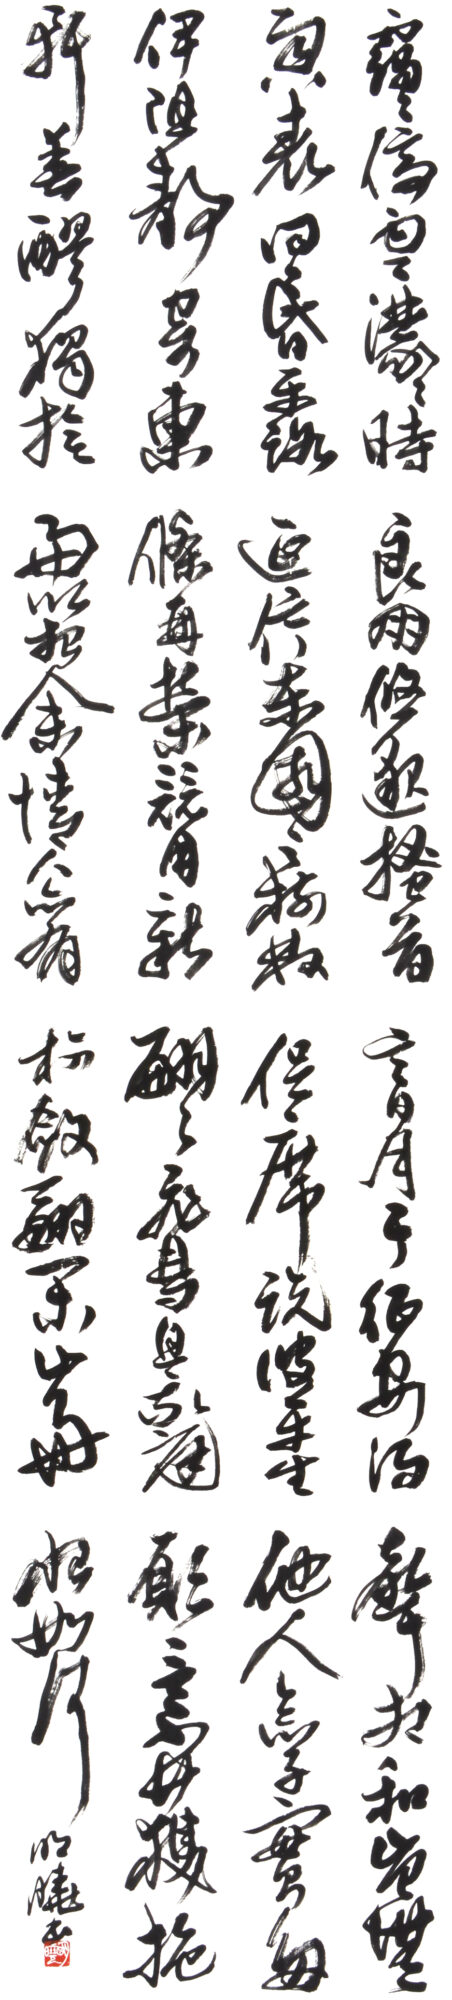 靄々停雲濛々時
雨八表同昏平路
伊阻靜寄東
軒春醪獨撫
良朋悠邈搔首
延佇東園之樹枝
條再榮競用新
好以招余情人亦有
言日月于征安得
促席說彼平生
翩々飛鳥息我庭
柯斂翮閒止好
聲相和豈無
他人念子實多
願言不獲抱
恨如何
明曉書